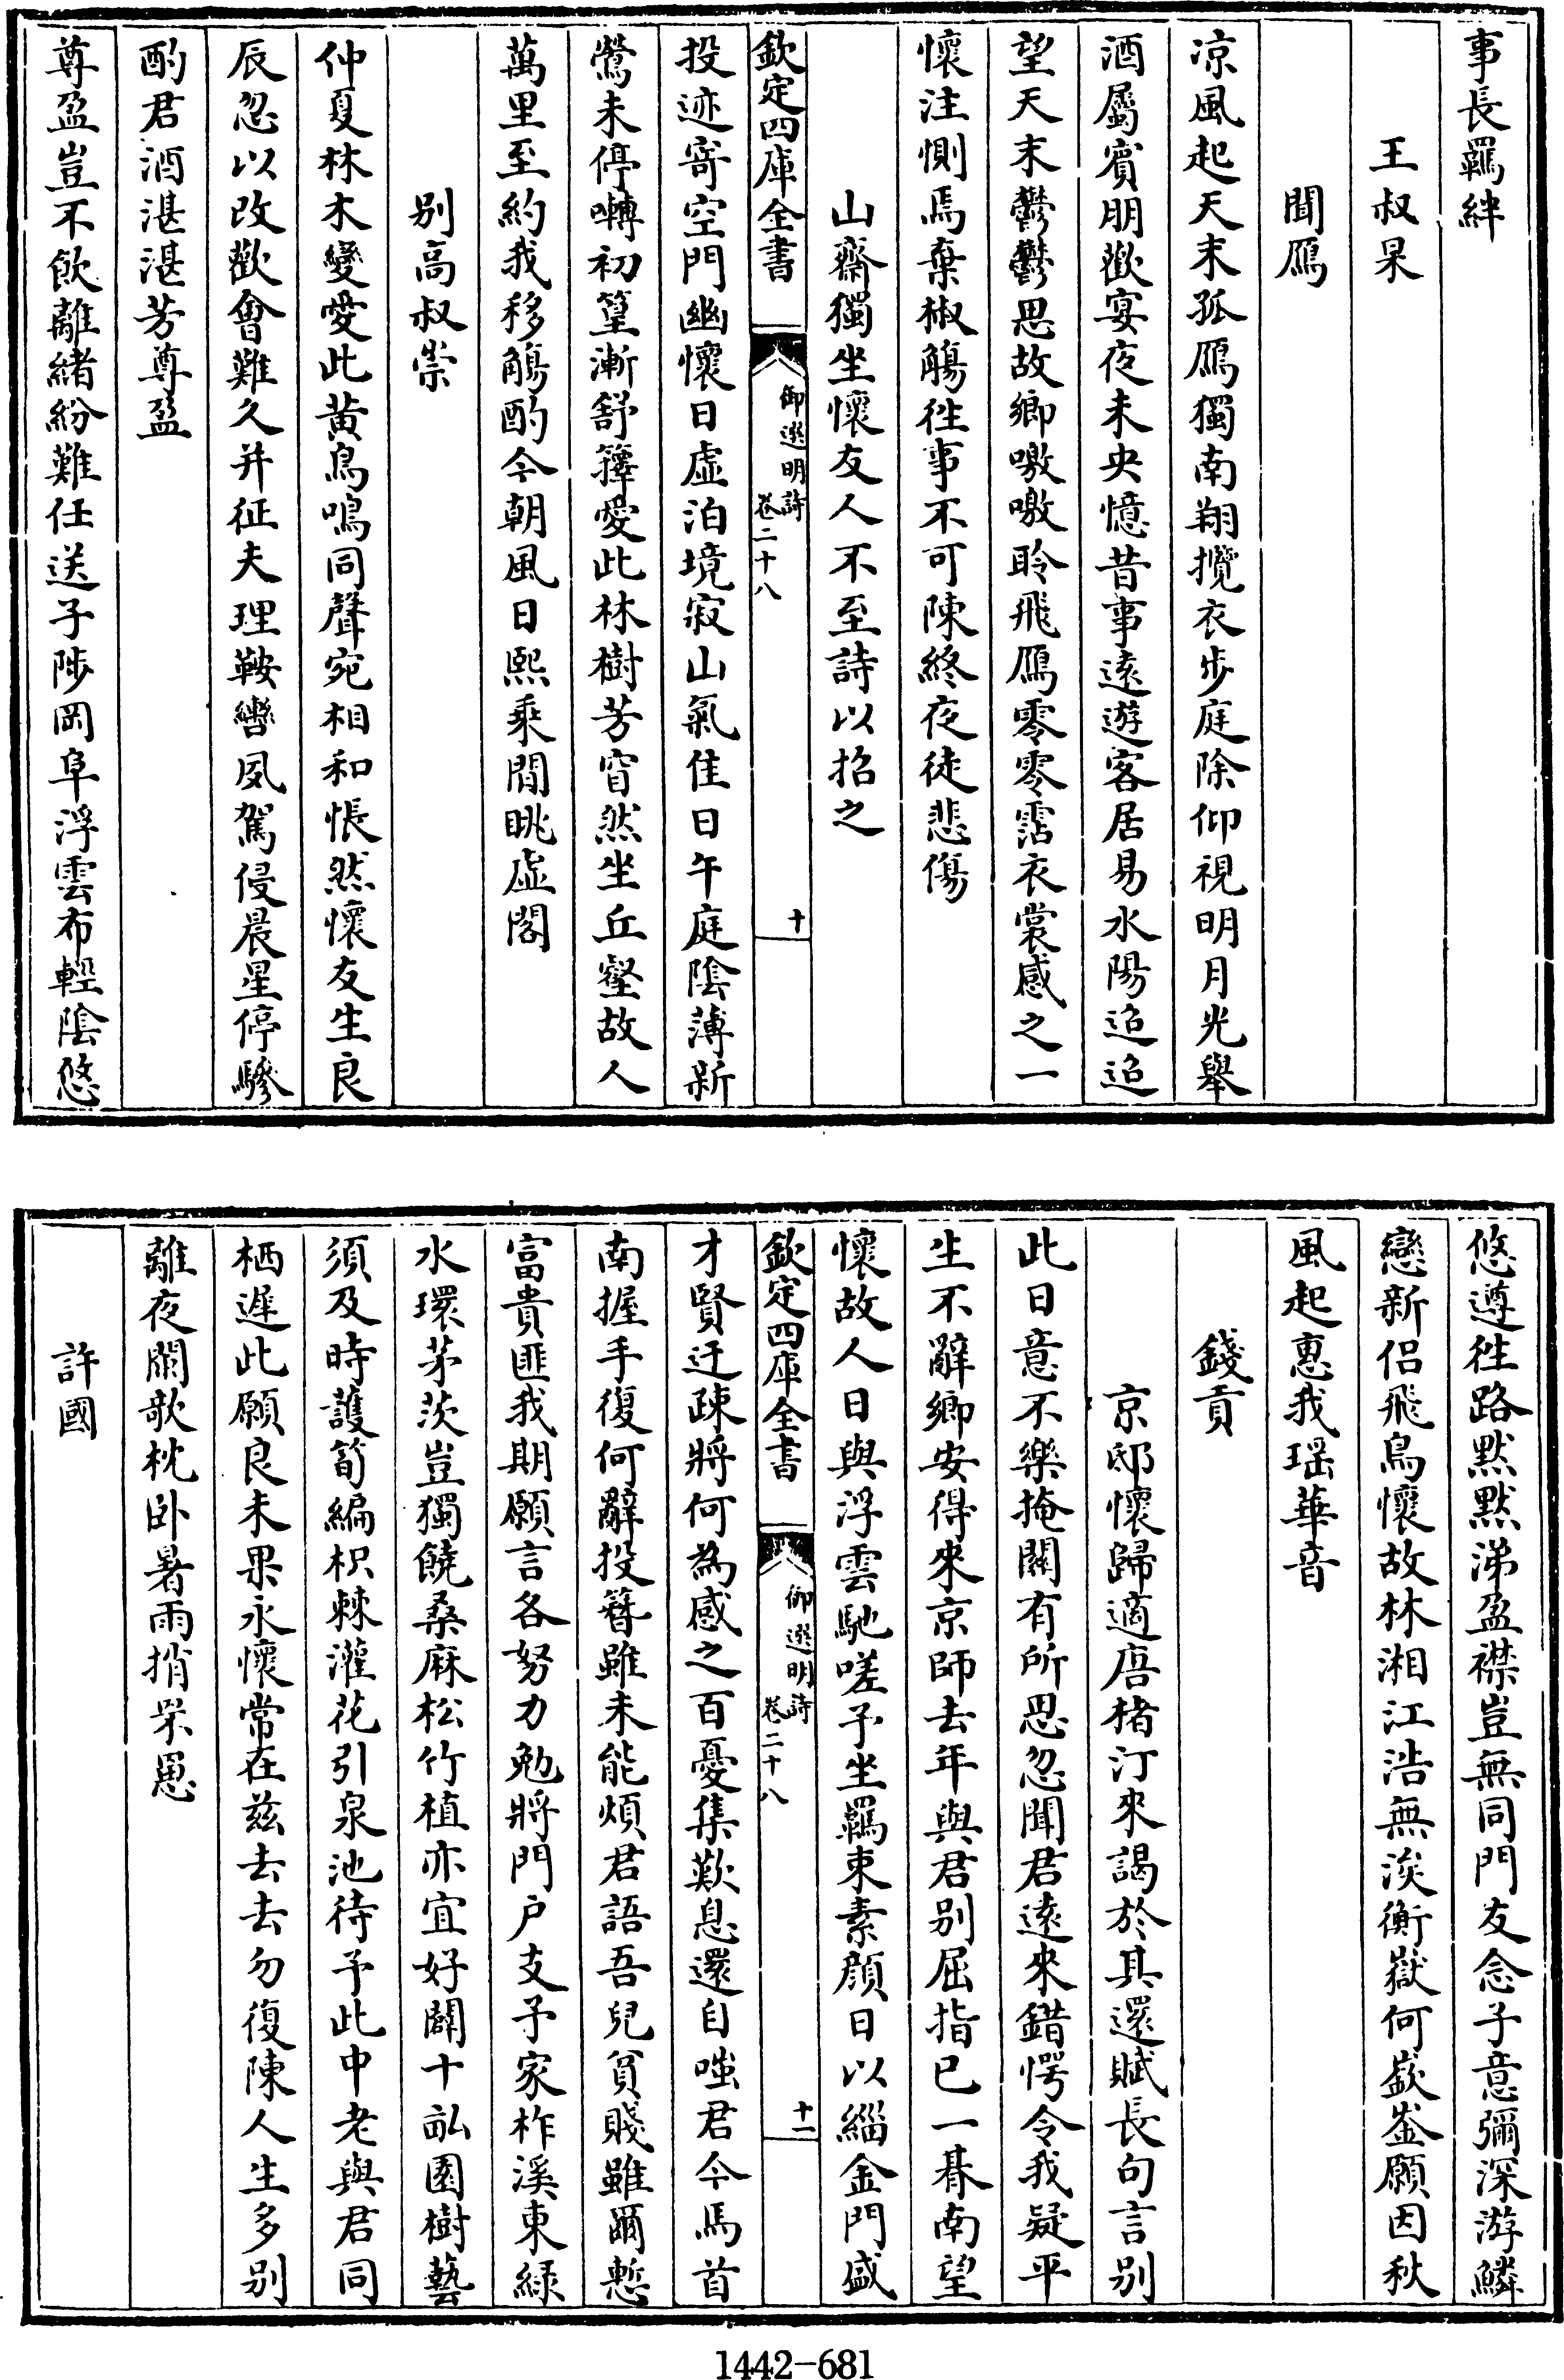 事長羈絆
王叔杲
聞鴈
凉風起天末孤鴈獨南翔攬衣步庭除仰視明月光舉
酒屬賓朋歡宴夜未央憶昔事遠遊客居易水陽迢迢
望天末鬱鬱思故鄉嗷嗷聆飛鴈零零霑衣裳感之一
懷注惻焉棄椒觴徃事不可陳終夜徒悲傷
山齋獨坐懷友人不至詩以招之
欽定四庫全書
御選明詩
卷二十八
十
投迹寄空門幽懷日虛泊境寂山氣佳日午庭陰薄新
鶯未停囀初篁漸舒籜愛此林樹芳窅然坐丘壑故人
萬里至約我移觴酌今朝風日熙乘間眺虛閣
别高叔崇
仲夏林木變愛此黃鳥鳴同聲宛相和悵然懷友生良
辰忽以改歡會難久并征夫理鞍轡夙駕侵晨星停驂
酌君酒湛湛芳尊盈
尊盈豈不飲離緒紛難任送子陟岡阜浮雲布輕陰悠
悠遵徃路黙黙涕盈襟豈無同門友念子意彌深游鱗
戀新侣飛鳥懷故林湘江浩無涘衡嶽何嶔崟願因秋
風起惠我瑶華音
錢貢
京邸懷歸適唐楮汀來謁於其還賦長句言别
此日意不樂掩關有所思忽聞君遠來錯愕令我疑平
生不辭鄉安得來京師去年與君别屈指已一朞南望
懷故人日與浮雲馳嗟予坐羈束素顔日以緇金門盛
欽定四庫全書
御選明詩
卷二十八
十一
才賢迂疎將何為感之百憂集歎息還自嗤君今馬首
南握手復何辭投簪雖未能煩君語吾兒貧賤雖爾慙
富貴匪我期願言各努力勉將門户支予家柞溪東緑
水環茅茨豈獨饒桑麻松竹植亦宜好闢十畝園樹藝
須及時護筍編枳棘灌花引泉池待予此中老與君同
栖遲此願良未果永懷常在兹去去勿復陳人生多别
離夜闌欹枕卧暑雨捎罘罳
許國
1442-681